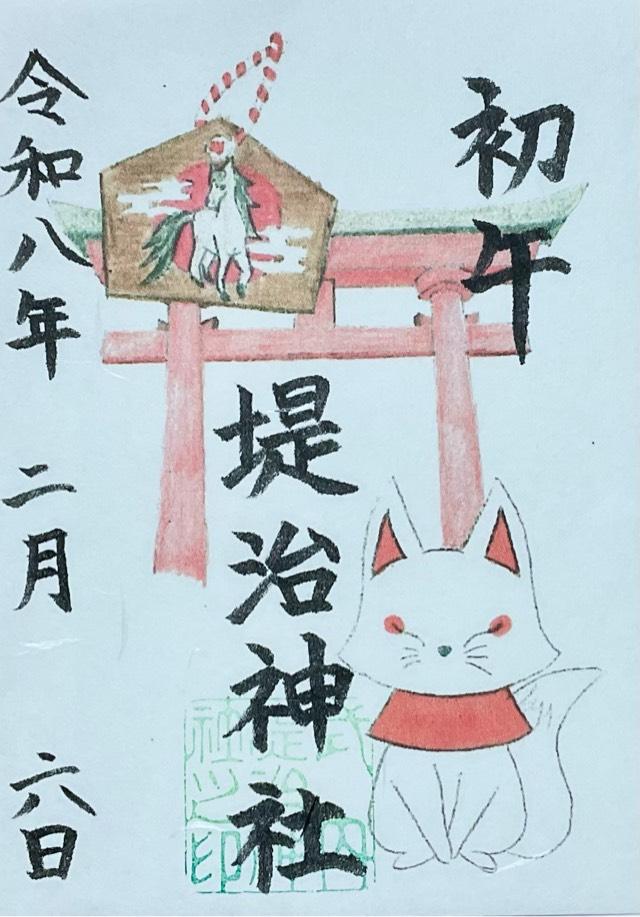 初午
堤治神社
令和八年 二月 六日
式内
堤治神
社之印